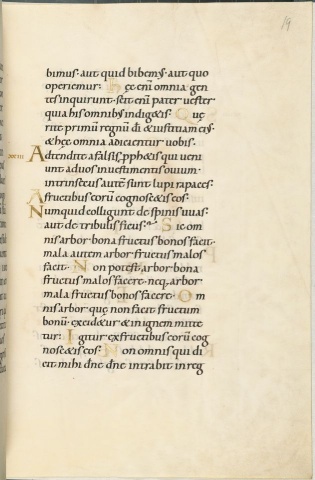 19
bimus · aut quid bibemus · aut quo
operiemur · Hęc enī omnia gen
tes inquirunt · scit enī pater uester
quia his omnibus indigetis · Quę
rite primū regnū dī & iustitiam eis ·
& hęc omnia adicientur uobis ·
Adtendite a falsis pph&is qui ueni
unt ad uos in uestimentis ouium ·
intrinsecus autē sunt lupi rapaces ·
A fructibus eorū cognosc&is eos ·
Numquid colligunt de spinis uuas ·
aut de tribulis ficus · Sic om
nis arbor bona fructus bonos facit ·
mala autem arbor fructus malos
facit · Non potest arbor bona
fructus malos facere · neq, arbor
mala fructus bonos facere · Om
nis arbor quę non facit fructum
bonū · excidetur & in ignem mitte
tur · Igitur ex fructibus eorū cog
nosc&is eos · Non omnis qui di
cit mihi dne dne intrabit in reg